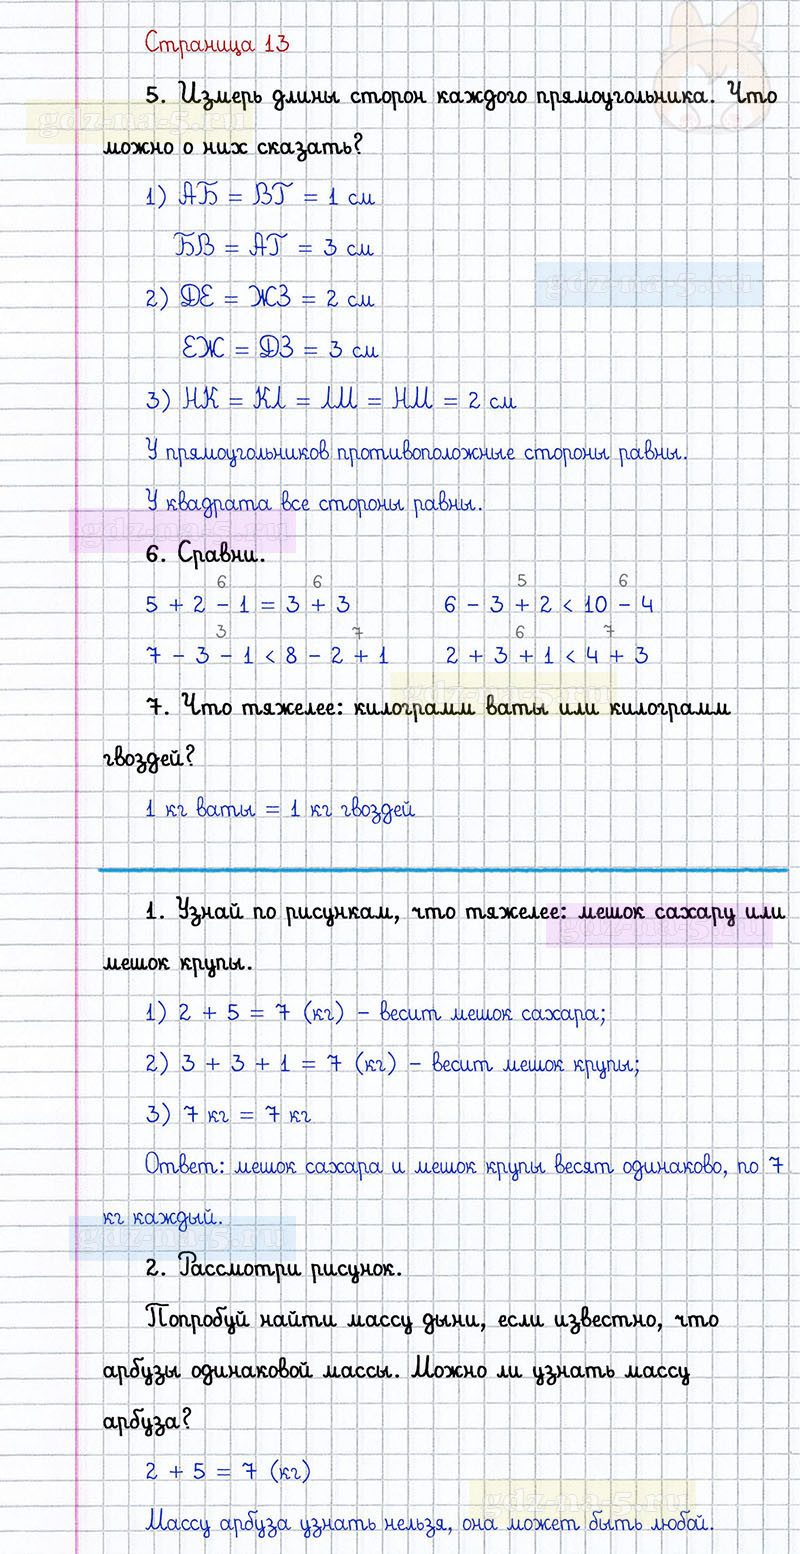 Страница 13
5. Измерь длины сторон каждого прямоугольника. Что
gdz-na-5.ru
можно о них сказать?
1) АБ = ВГ = 1 см
БВ = АГ = 3 см
gdz-na-5.ru
2) ДЕ = ЖЗ = 2 см
ЕЖ = ДЗ = 3 см
3) НК = КЛ = ЛМ = НМ = 2 см
У прямоугольников противоположные стороны равны.
У квадрата все стороны равны.
gdz-na-5.ru
6. Сравни.
6 6 5 6
5 + 2 - 1 = 3 + 3 6 - 3 + 2 < 10 - 4
3 7 6 7
7 - 3 - 1 < 8 - 2 + 1 2 + 3 + 1 < 4 + 3
gdz-na-5.ru
7. Что тяжелее: килограмм ваты или килограмм
гвоздей?
1 кг ваты = 1 кг гвоздей
1. Узнай по рисункам, что тяжелее: мешок сахару или
gdz-na-5.ru
мешок крупы.
1) 2 + 5 = 7 (кг) - весит мешок сахара;
2) 3 + 3 + 1 = 7 (кг) - весит мешок крупы;
3) 7 кг = 7 кг
Ответ: мешок сахара и мешок крупы весят одинаково, по 7
кг каждый.
gdz-na-5.ru
2. Рассмотри рисунок.
Попробуй найти массу дыни, если известно, что
арбузы одинаковой массы. Можно ли узнать массу
арбуза?
2 + 5 = 7 (кг)
gdz-na-5.ru
Массу арбуза узнать нельзя, она может быть любой.